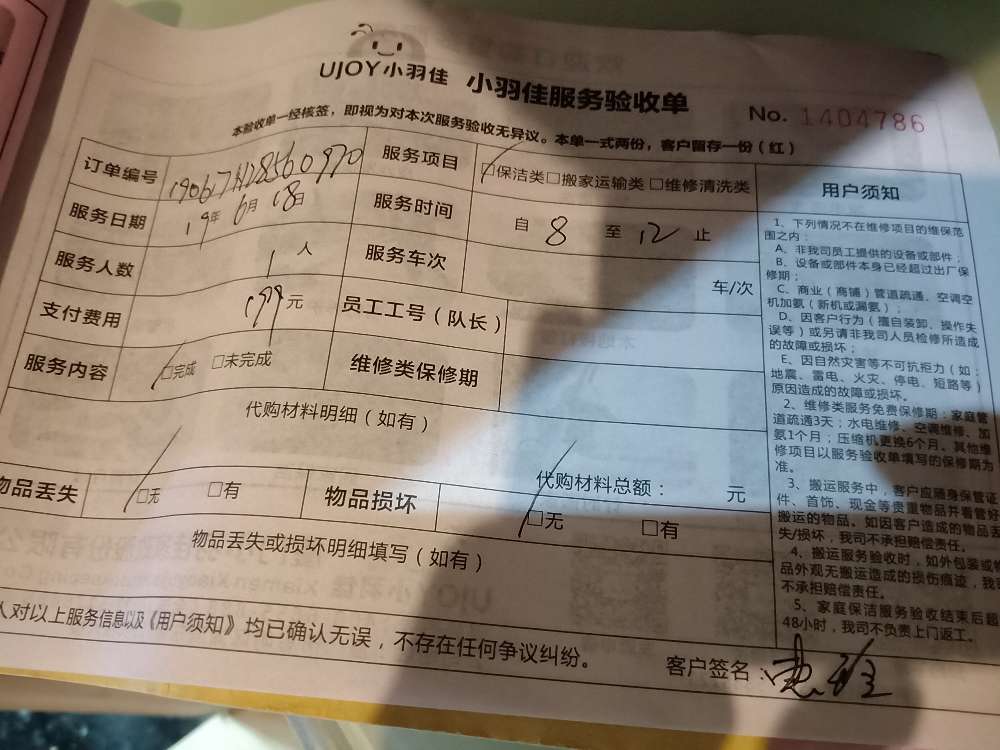 UJOY小羽佳 小羽佳服务验收单
No. 1404786
本验收单一经核签，即视为对本次服务验收无异议。本单一式两份，客户留存一份（红）
订单编号
服务项目 □保洁类□搬家运输类□维修清洗类
服务日期 19年6月18日 服务时间 自 8 至 12 止
服务人数 1 人 服务车次 车/次
支付费用 199元 员工工号（队长）
服务内容 □完成 □未完成 维修类保修期
代购材料明细（如有）
代购材料总额： 元
物品丢失 □无 □有 物品损坏 □无 □有
物品丢失或损坏明细填写（如有）
人对以上服务信息以及《用户须知》均已确认无误，不存在任何争议纠纷。
客户签名：
用户须知
1、下列情况不在维修项目的维保范
围之内：
A、非我司员工提供的设备或部件；
B、设备或部件本身已经超过出厂保
修期；
C、商业（商铺）管道疏通、空调空
机加氨（新机或漏氨）；
D、因客户行为（擅自装卸、操作失
误等）或另请非我司人员检修所造成
的故障或损坏；
E、因自然灾害等不可抗拒力（如：
地震、雷电、火灾、停电、短路等）
原因造成的故障或损坏。
2、维修类服务免费保修期：家庭管
道疏通3天；水电维修、空调维修、加
氨1个月；压缩机更换6个月。其他维
修项目以服务验收单填写的保修期为
准。
3、搬运服务中，客户应随身保管证
件、首饰、现金等贵重物品并看管好
搬运的物品。如因客户造成的物品丢
失/损坏，我司不承担赔偿责任。
4、搬运服务验收时，如外包装或物
品外观无搬运造成的损伤痕迹，我
不承担赔偿责任。
5、家庭保洁服务验收结束后超
48小时，我司不负责上门返工。